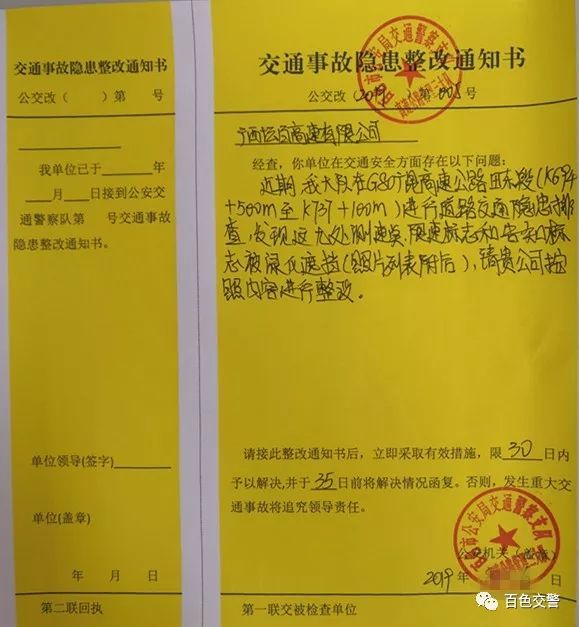 交通事故隐患整改通知书
公交改（ ）第 号
我单位已于 年
月 日接到公安交
通警察队第 号交通事故
隐患整改通知书。
单位领导(签字)
单位(盖章)
年 月 日
第二联回执
交通事故隐患整改通知书
公交改（2019）第 号
广西坛百高速有限公司
经查，你单位在交通安全方面存在以下问题：
近期，我大队在G80广昆高速公路田东段（K694
+500m至K737+100m）进行道路交通隐患排
查，发现这九处测速点、限速标志和 标
志被绿化遮挡（照片列表附后），请贵公司按
照内容进行整改。
请接此整改通知书后，立即采取有效措施，限30日内
予以解决，并于35日前将解决情况函复。否则，发生重大交
通事故将追究领导责任。
百色市公安局交通警察支队
公安机关（ ）
2019年 日
第一联交被检查单位
百色交警